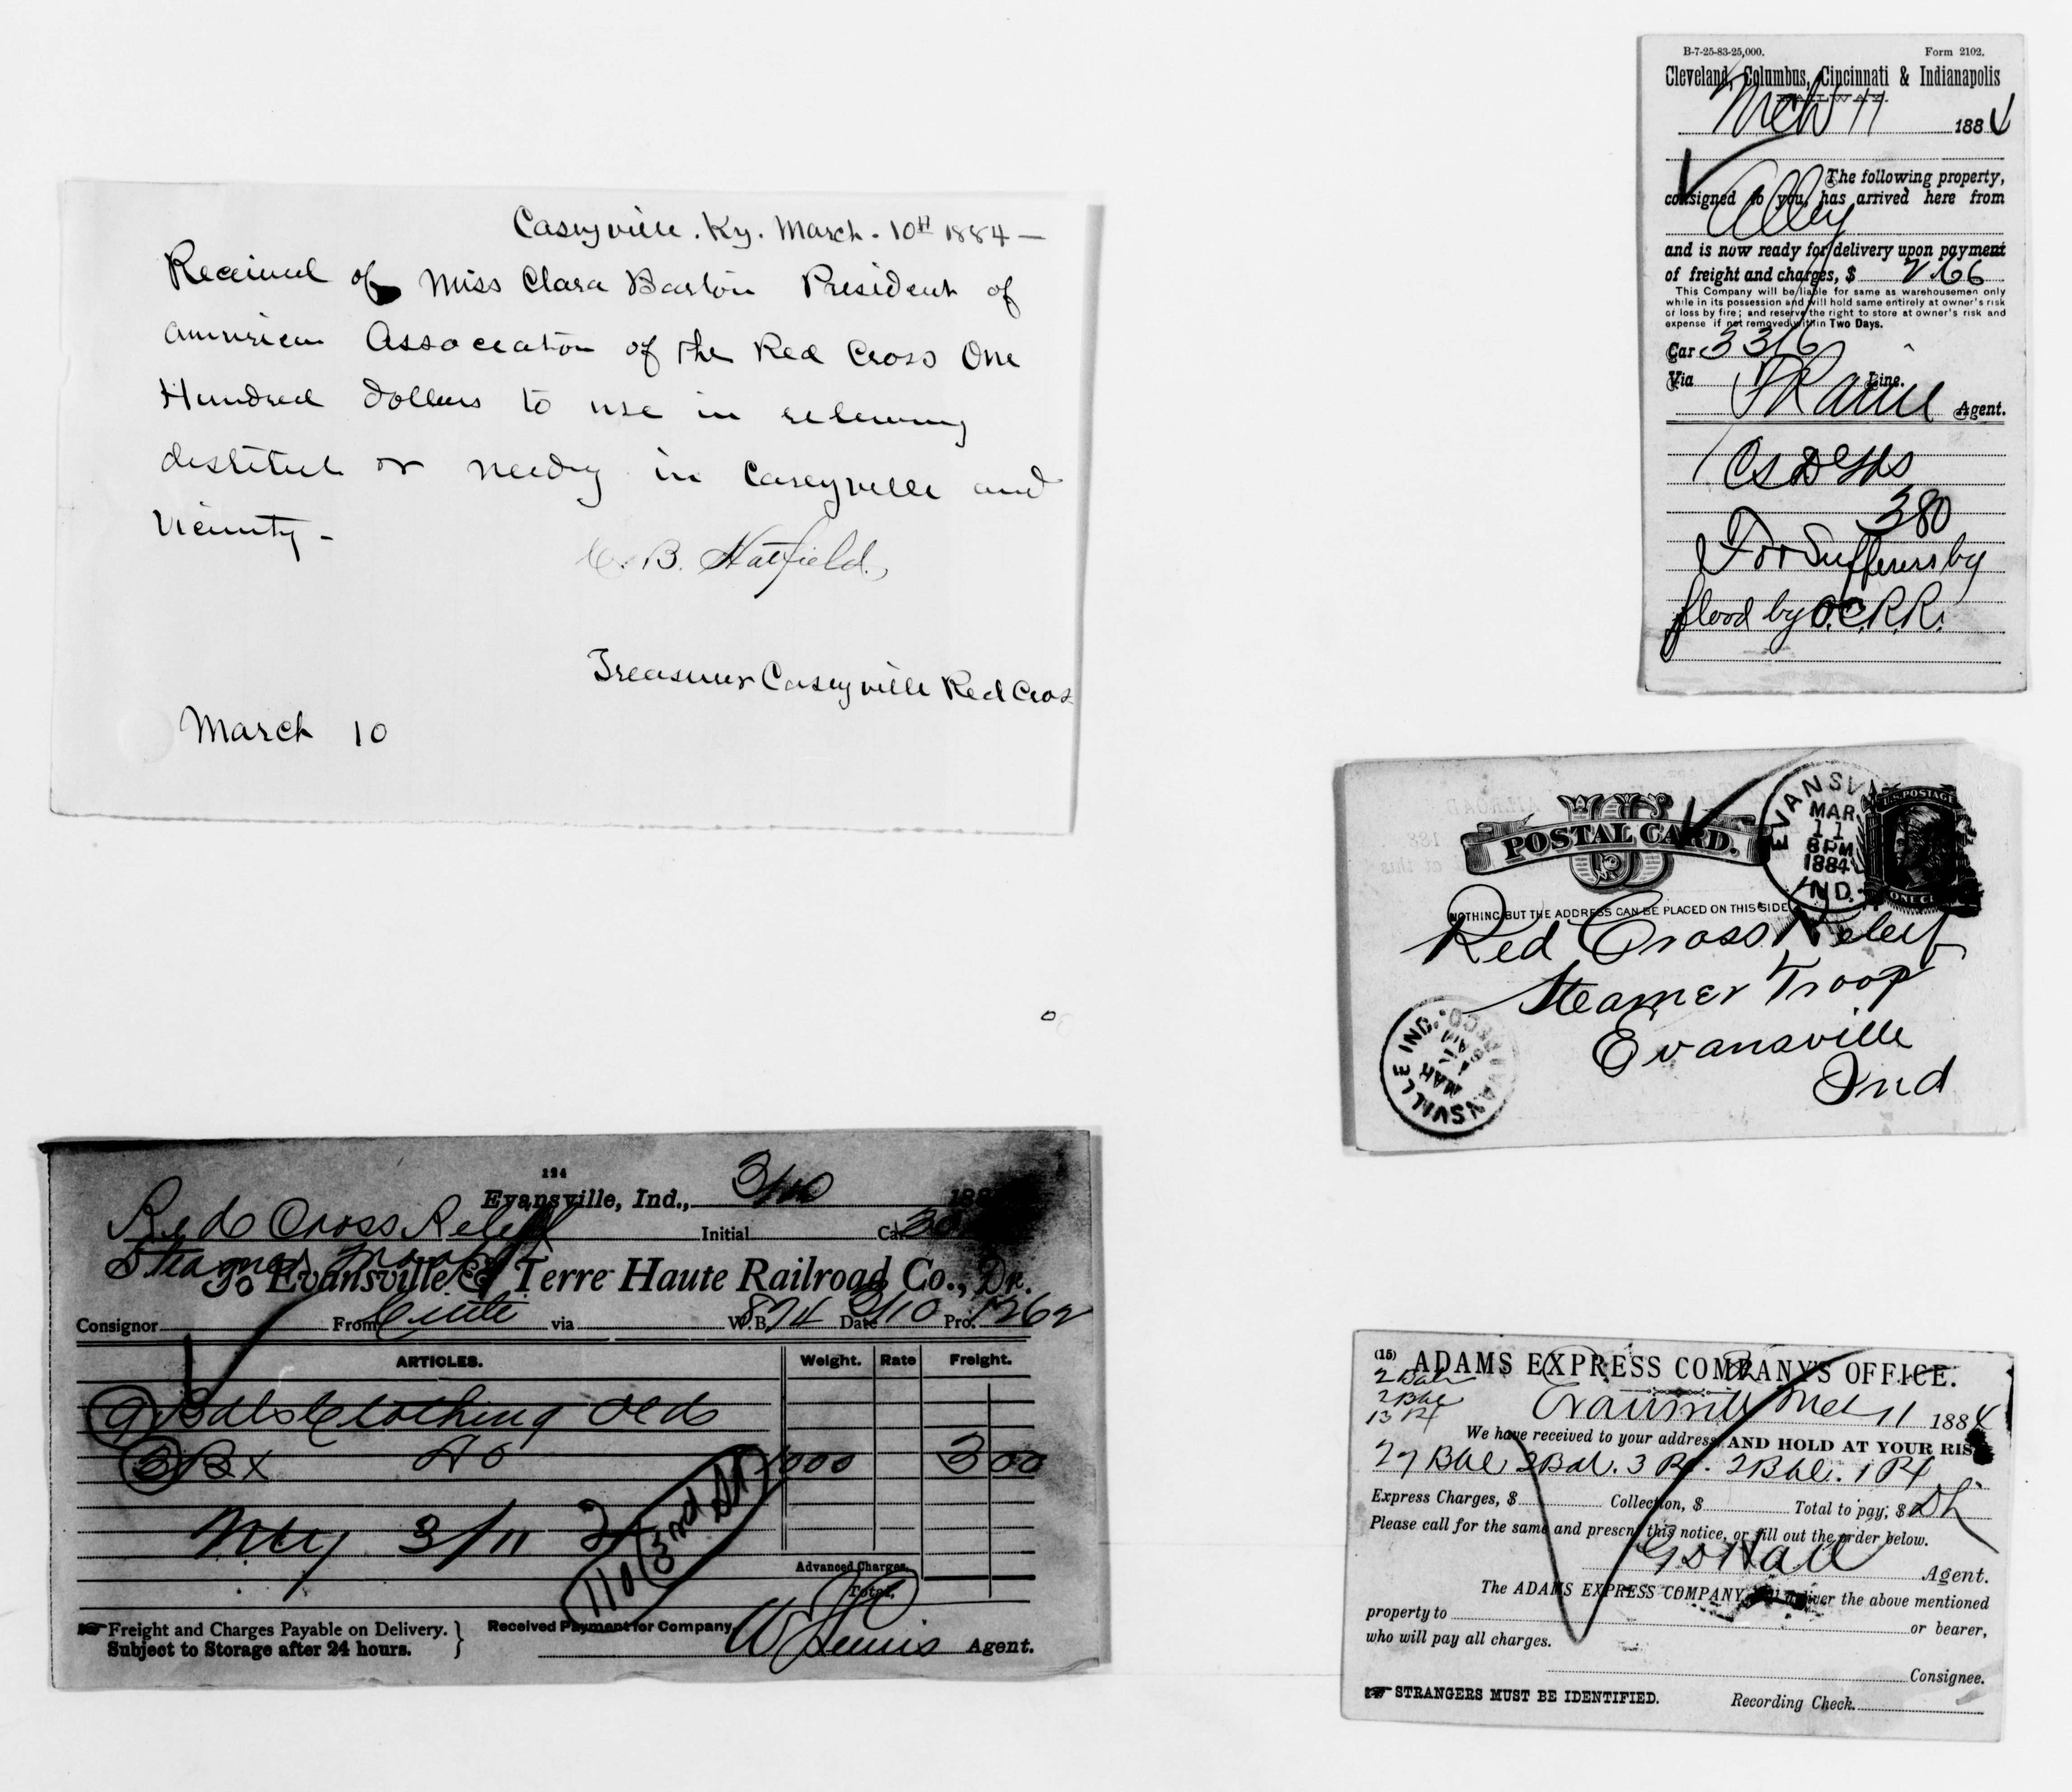 Caseyville. Ky. March. 10th 1884 —
Received of Miss Clara Barton President of
American Association of the Red Cross One
Hundred Dollars to use in relieving
destitute or needy in Caseyville and
Vicinity -
C. B. Hatfield.
Treasurer Caseyville Red Cros
March 10
B-7-25-83-25,000. Form 2102.
Cleveland, Columbus, Cincinnati & Indianapolis
RAILWAY.
Mch 11 1884
The following property,
consigned to you, has arrived here from
Alley
and is now ready for delivery upon payment
of freight and charges, $ 2.66
This Company will be liable for same as warehousemen only
while in its possession and will hold same entirely at owner's risk
or loss by fire; and reserve the right to store at owner's risk and
expense if not removed within Two Days.
Car 3316
Via Line.
Agent.
1 Cs
380
For Sufferers by
flood by O.C.R.R.
U S
POSTAL CARD.
NOTHING BUT THE ADDRESS CAN BE PLACED ON THIS SIDE
EVANSV
MAR
11
8 PM
1884
IND.
U.S. POSTAGE
ONE CE
Red Cross Relief
Steamer Troop
Evansville
Ind
EVANSVILLE IND. REC'D.
MAR
12
AM
124
Evansville, Ind., 3/10 188
Red Cross Relief Initial Car 30
Steamer Troop
To Evansville & Terre Haute Railroad Co., Dr.
Consignor From via W.B. 874 Date 3/10 Pro. 1262
ARTICLES. Weight. Rate Freight.
9 Bdls Clothing Old
3 Bx do 1000 3 00
3/11
110 2nd St
Advanced Charges,
Total,
Freight and Charges Payable on Delivery.
Subject to Storage after 24 hours.
Received Payment for Company,
W Lewis Agent.
(15) ADAMS EXPRESS COMPANY'S OFFICE.
2 Bdl
2 Bbl
13 Pk
Evansville Mch 11 1884
We have received to your address, AND HOLD AT YOUR RISK
27 Bbl 2 Bdl. 3 Pk. 2 Bbl. 1 Pk
Express Charges, $ Collection, $ Total to pay, $ Dh
Please call for the same and present this notice, or fill out the order below.
G D Hall
Agent.
The ADAMS EXPRESS COMPANY will deliver the above mentioned
property to or bearer,
who will pay all charges.
Consignee.
STRANGERS MUST BE IDENTIFIED. Recording Check.